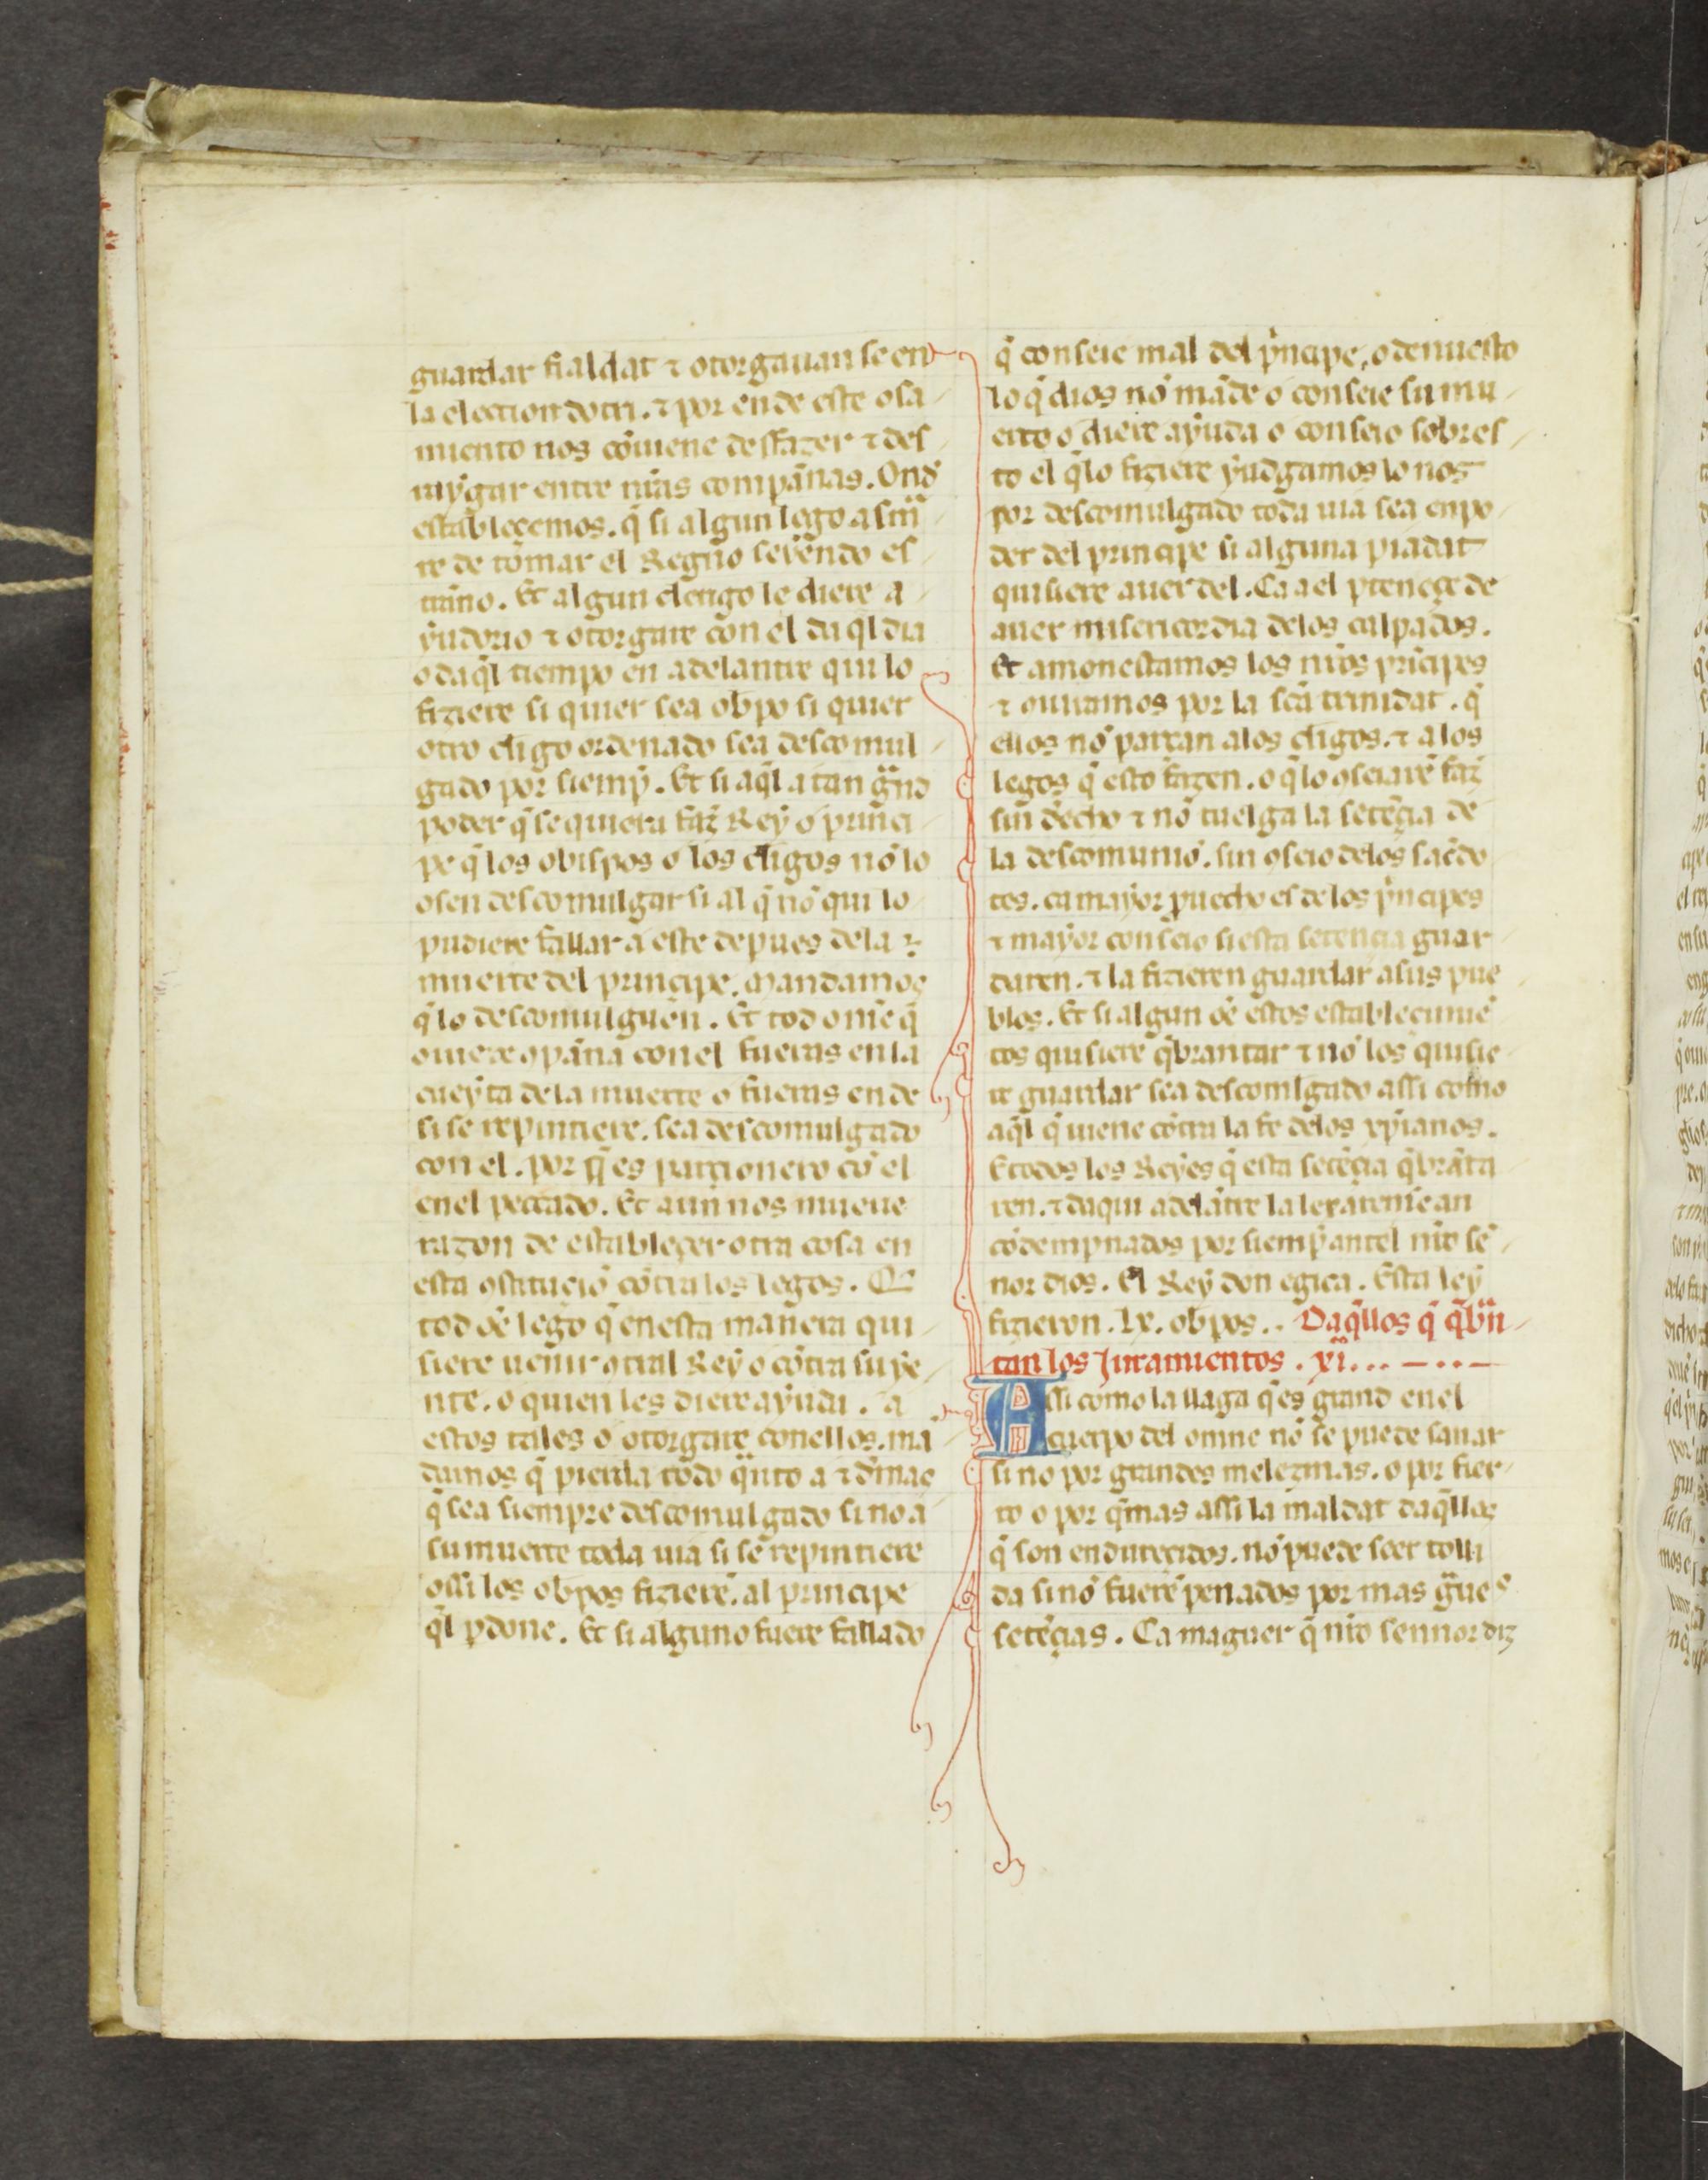 guardar fialdat ⁊ otorgauan se en
la election dotri. ⁊ por ende este osa
miento nos cōuiene desfazer ⁊ des
uiygar entre nr̄as compānas. Ond̄
estableçemos. q̄ si algun lego asm̄
re de tomar el Regno seyendo es
trāno. Et algun clerigo le diere a
yudorio ⁊ otorgare con el da ql dia
o daql̄ tiempo en adelantre qui lo
fiziere si quier sea obpo si quier
otro cligo ordenado sea descomul
gado por siemp̄. Et si aql̄ a tan gn̄d
poder q̄ se quiera faz̄ Rey o princi
pe q̄ los obispos o los cligos nō lo
osen descomulgar si al q̄ nō qui lo
pudiere fallar a este depues dela
muerte del principe. Mandamos
q̄ lo descomulguen. Et tod omē q̄
ouiere ꝯpāna con el fueras en la
cueyta de la muerte o fueras ende
si se repintiere. sea descomulgado
con el. por q̄ es parçionero cō el
en el peccado. Et aun nos mueue
razon de estableçer otra cosa en
esta ꝯstitucio cōtra los legos. Q̄
tod ōe lego q̄ en esta manera qui
siere uenir ꝯtral Rey o cōtra su ye
nte. o quien les diere ayuda. a
estos tales o otorgare conellos. mā
damos q̄ pierda todo q̄nto a ⁊ dm̄as
q̄ sea siempre descomulgado si no a
su muerte toda uia si sē repintiere
o si los obpos fiziere. al principe
ql̄ ꝑdone. Et si alguno fuere fallado
q̄ conseie mal del p̄ncipe, o denuesto
lo q̄ dios nō māde o conseie su mu
erto o diere ayuda o conseio sobres
to el q̄ lo fiziere yudgamos lo nos
por descomulgado toda uia sea en po
der del principe si alguna piadat
quisiere auer del. Ca a el ꝑteneçe de
auer misericordia delos culpados.
Et amonestamos los nr̄os prīcipes
⁊ ouiramos por la sc̄a trinidat. q̄
ellos nō partan alos cligos. ⁊ a los
legos q̄ esto fazen. o q̄ lo ꝯseiarē faz̄
sin d̄echo ⁊ nō tuelga la setēcia de
la descomuniō. sin ꝯseio delos sac̄do
tes. ca mayor ꝓuecho es de los p̄ncipes
⁊ mayor conseio si esta setencia guar
daren. ⁊ la fizieren guardar a sus pue
blos. Et si algun dē estos establecimiē
tos quisiere q̄brantar ⁊ nō los quisie
re guardar sea descomlgado assi como
aql̄ q̄ uiene cōtra la fe delos xp̄ianos.
E todos los Reyes q̄ esta setēçia q̄brāta
ren. ⁊ daqui adelātre la lexarenle an
cōdempnados por siemp̄ antel nr̄o se
nor dios. El Rey don egica. Esta ley
fizieron. lx. obpos.. Daq̄llos q̄ q̄brā
tan los Juramientos. xi... — .. —
Assi como la llaga q̄ es grand en el
cuerpo del omne nō se puede sanar
si no por grandes melezinas. o por fier
ro o por q̄mas assi la maldat daq̄llos
q̄ son endurecidos. nō puede seer tolli
da si nō fuerē penados por mas g̃ues
setēçias. Ca maguer q̄ nr̄o sennor diz